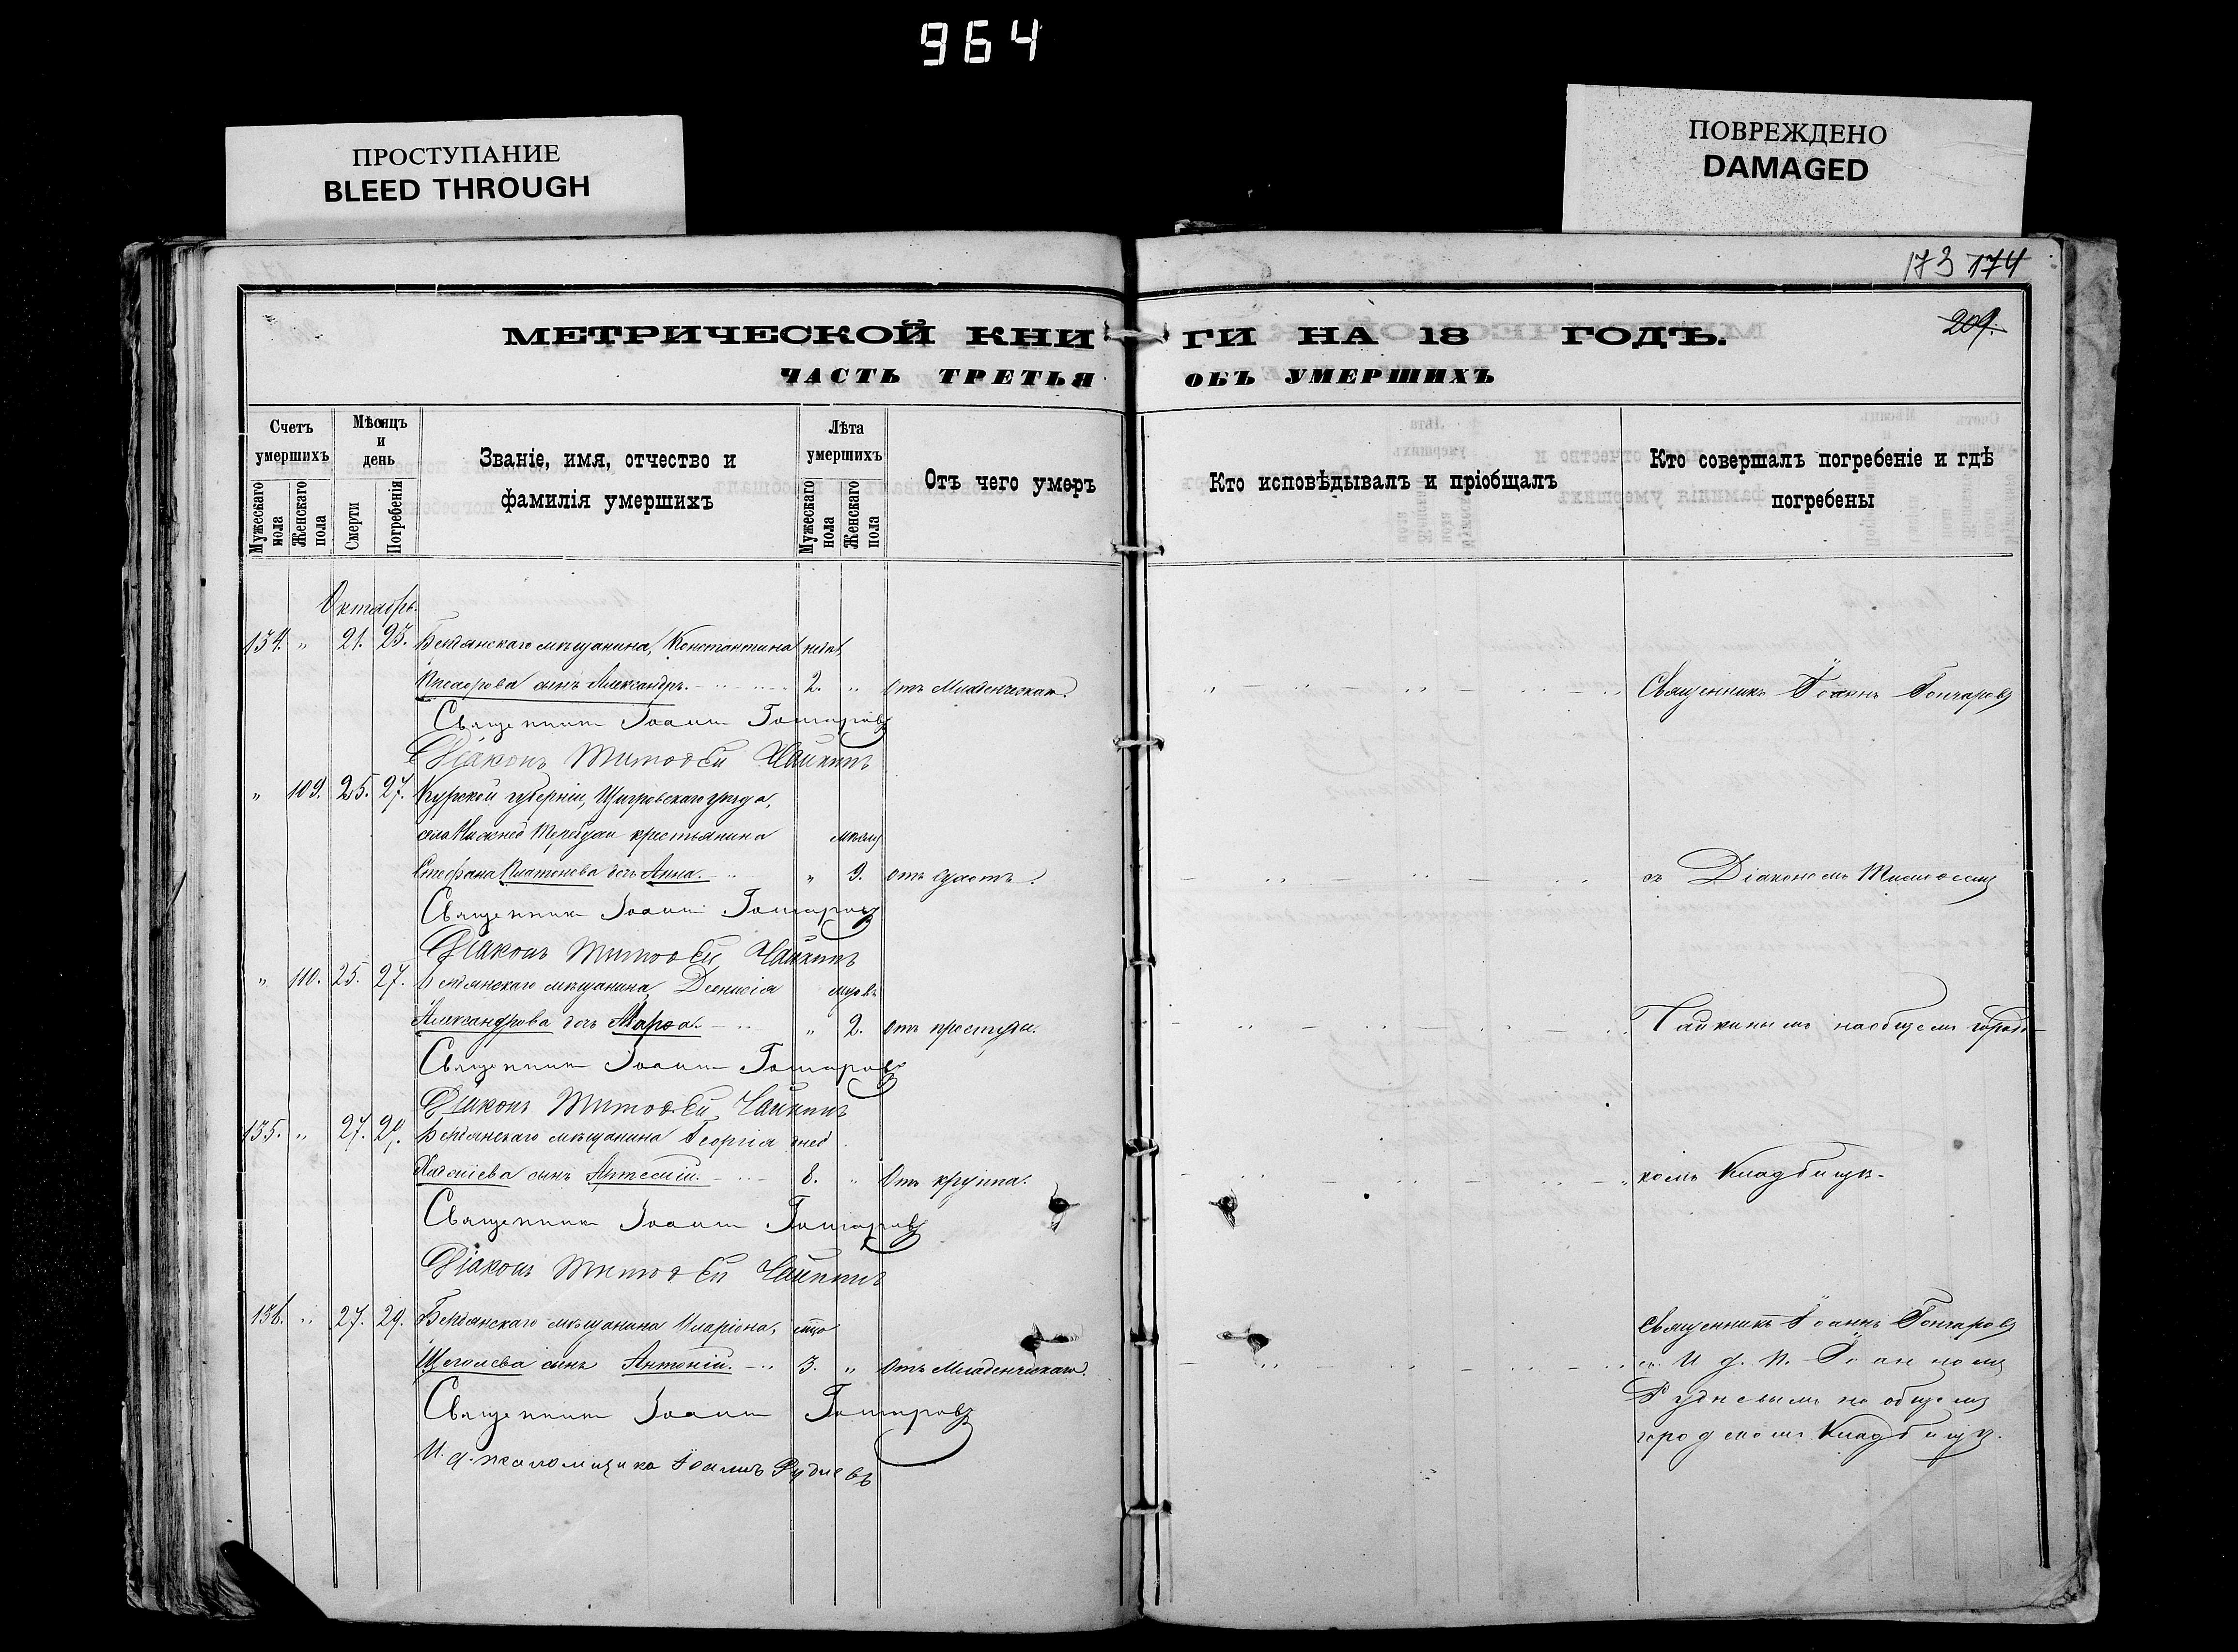 964
ПРОСТУПАНИЕ
BLEED THROUGH
ПОВРЕЖДЕНО
DAMAGED
173 174
209.
МЕТРИЧЕСКОЙ КНИГИ НА 18 ГОДЪ.
ЧАСТЬ ТРЕТЬЯ ОБЪ УМЕРШИХЪ
Счетъ умершихъ
Мужескаго пола
Женскаго пола
Мѣсяцъ и день
Смерти
Погребенія
Званіе, имя, отчество и
фамилія умершихъ
Лѣта умершихъ
Мужескаго пола
Женскаго пола
Отъ чего умеръ
Кто исповѣдывалъ и пріобщалъ
Кто совершалъ погребеніе и гдѣ
погребены
Октябрь.
134. " 21. 23. Бердянскаго мѣщанина, Константина
сынъ Александръ. 2. " Отъ Младенческой. Священникъ Іоаннъ Гончаровъ
Священникъ Іоаннъ Гончаровъ
Діаконъ Тимофей Чайкинъ
" 109. 25. 27. Курской губерніи, Щигровскаго уѣзда,
села крестьянина
Стефана Платонова дочь Анна. " 9. Отъ съ Діакономъ Тимофеемъ
Священникъ Іоаннъ Гончаровъ
Діаконъ Тимофей Чайкинъ
" 110. 25. 27. Бердянскаго мѣщанина Діонисія
Александрова дочь Марѳа. " 2. Отъ простуды. Чайкинымъ на общемъ городс-
Священникъ Іоаннъ Гончаровъ
Діаконъ Тимофей Чайкинъ
135. " 27. 29. Бердянскаго мѣщанина Георгія
сынъ 8. " Отъ крупа. комъ Кладбищѣ.
Священникъ Іоаннъ Гончаровъ
Діаконъ Тимофей Чайкинъ
136. " 27. 29. Бердянскаго мѣщанина Иларіона, Священникъ Іоаннъ Гончаровъ
Щеголева сынъ Антоній. 3. " Отъ Младенческаго. съ И. д. п. Іоанномъ
Священникъ Іоаннъ Гончаровъ Рудневымъ на общемъ
городскомъ Кладбищѣ.
И. д. псаломщика Іоаннъ Рудневъ